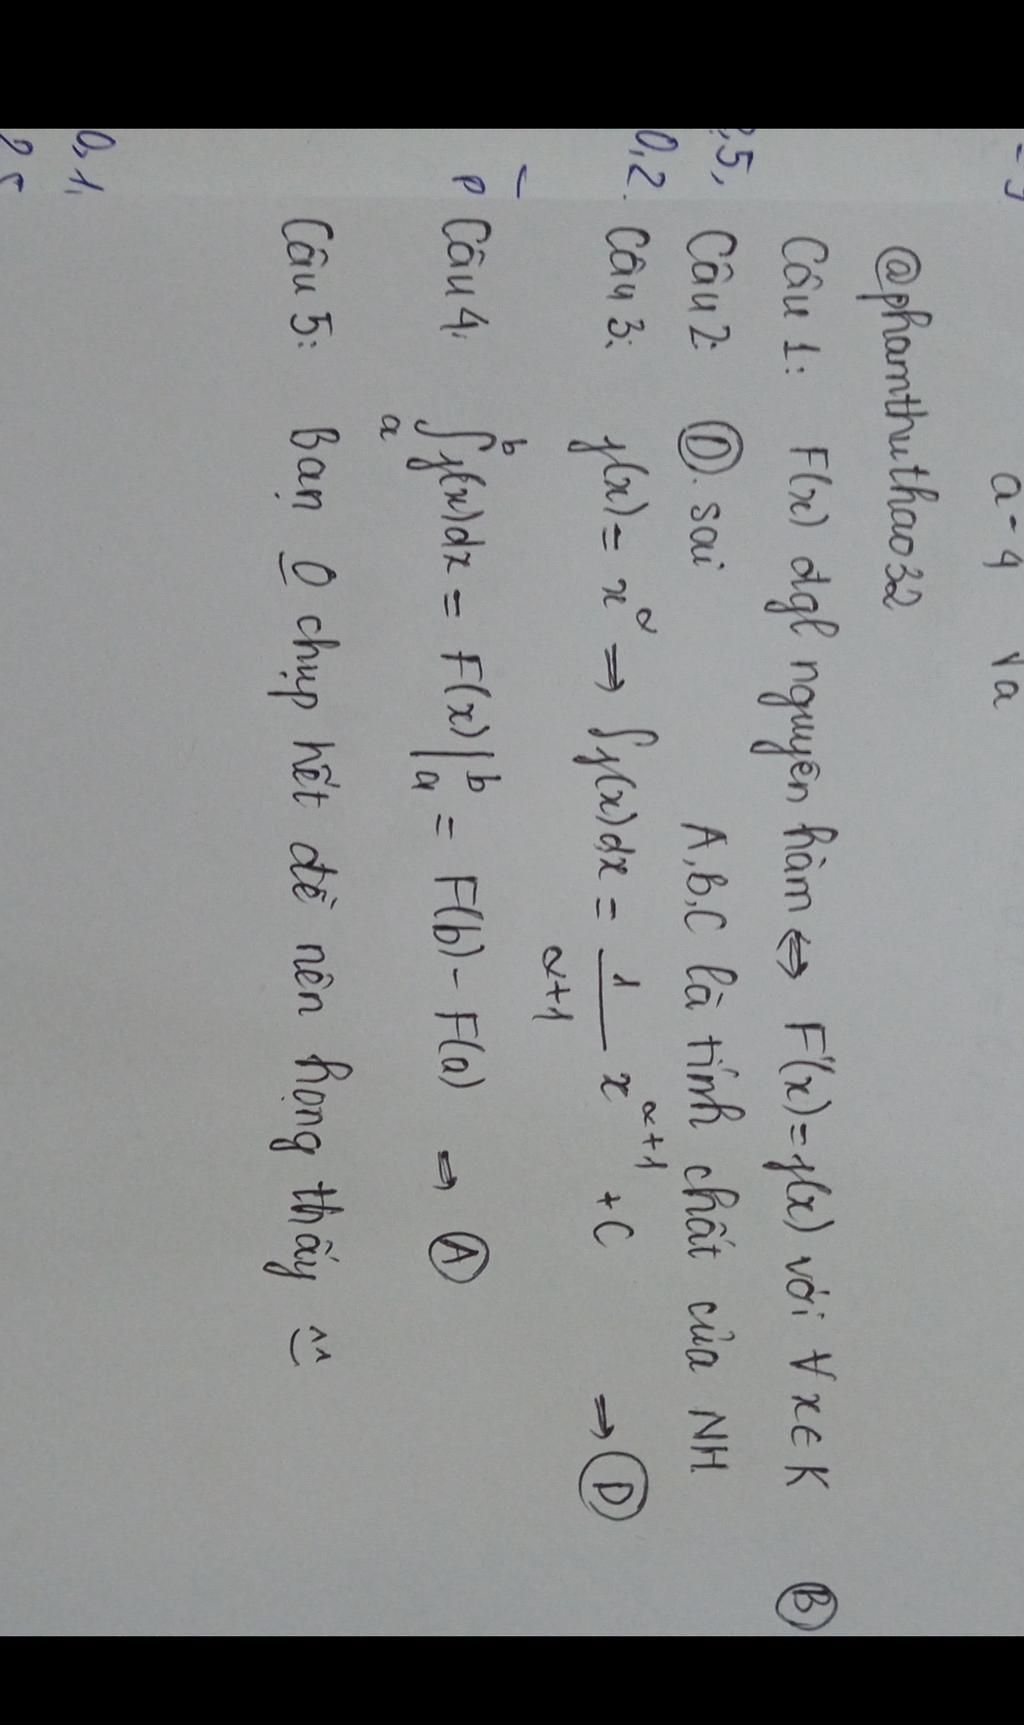 a - 4 √a
@phamthuthao32
Câu 1: F(x) đgl nguyên hàm ⇔ F'(x) = f(x) với ∀x∈K (B)
2,5, Câu 2: (D). sai A,B,C là tính chất của NH
0,2. Câu 3: f(x) = x^α ⇒ ∫f(x)dx = 1/(α+1) x^(α+1) + C ⇒ (D)
Câu 4, ∫_a^b f(x)dx = F(x)|_a^b = F(b) - F(a) ⇒ (A)
Câu 5: Bạn O chụp hết đề nên họng thấy ^^
0,1,